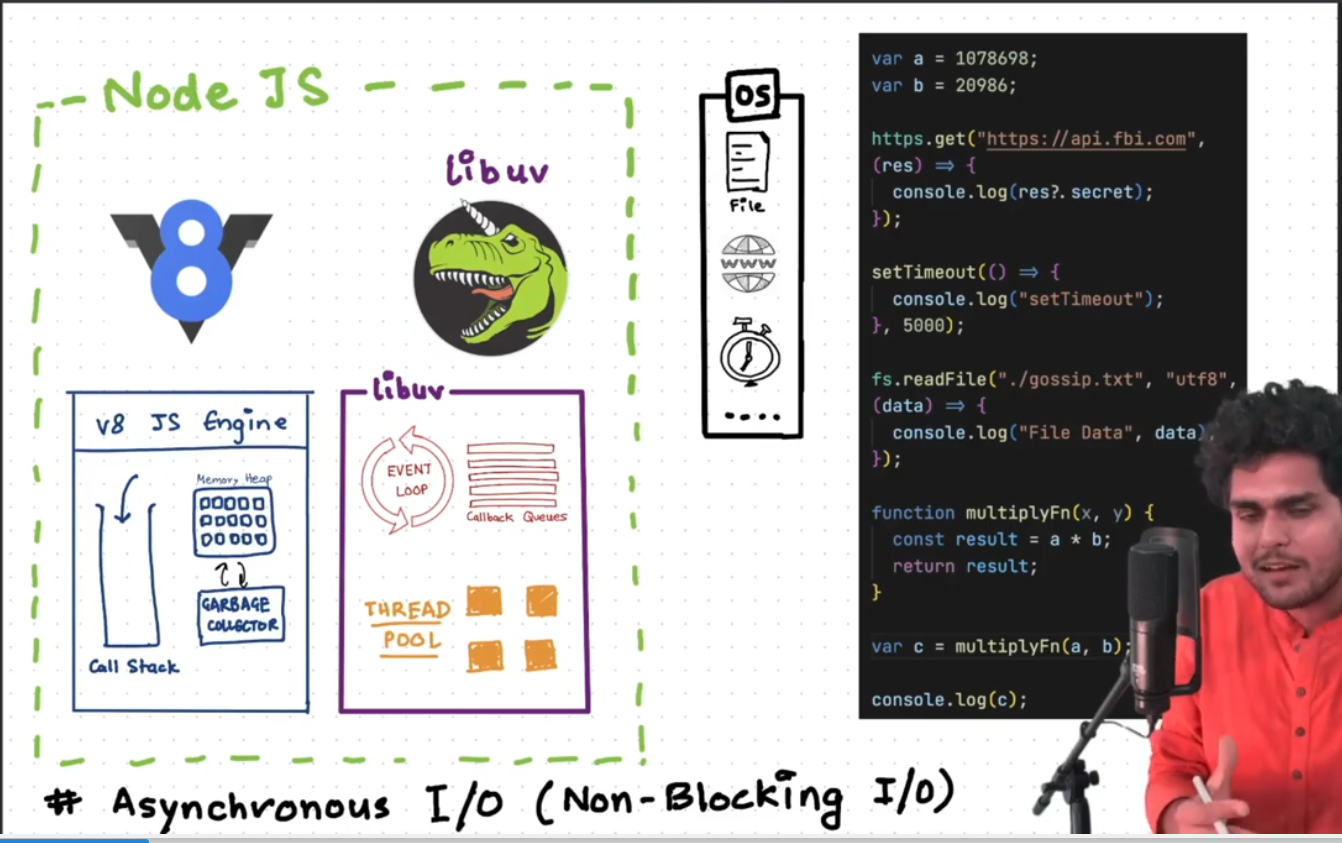 Node JS
libuv
8
V8 JS Engine
Memory Heap
GARBAGE
COLLECTOR
Call Stack
libuv
EVENT
LOOP
Callback Queues
THREAD
POOL
OS
File
WWW
var a = 1078698;
var b = 20986;
https.get("https://api.fbi.com",
(res) => {
console.log(res?.secret);
});
setTimeout(() => {
console.log("setTimeout");
}, 5000);
fs.readFile("./gossip.txt", "utf8",
(data) => {
console.log("File Data", data)
});
function multiplyFn(x, y) {
const result = a * b;
return result;
}
var c = multiplyFn(a, b);
console.log(c);
# Asynchronous I/O (Non-Blocking I/O)